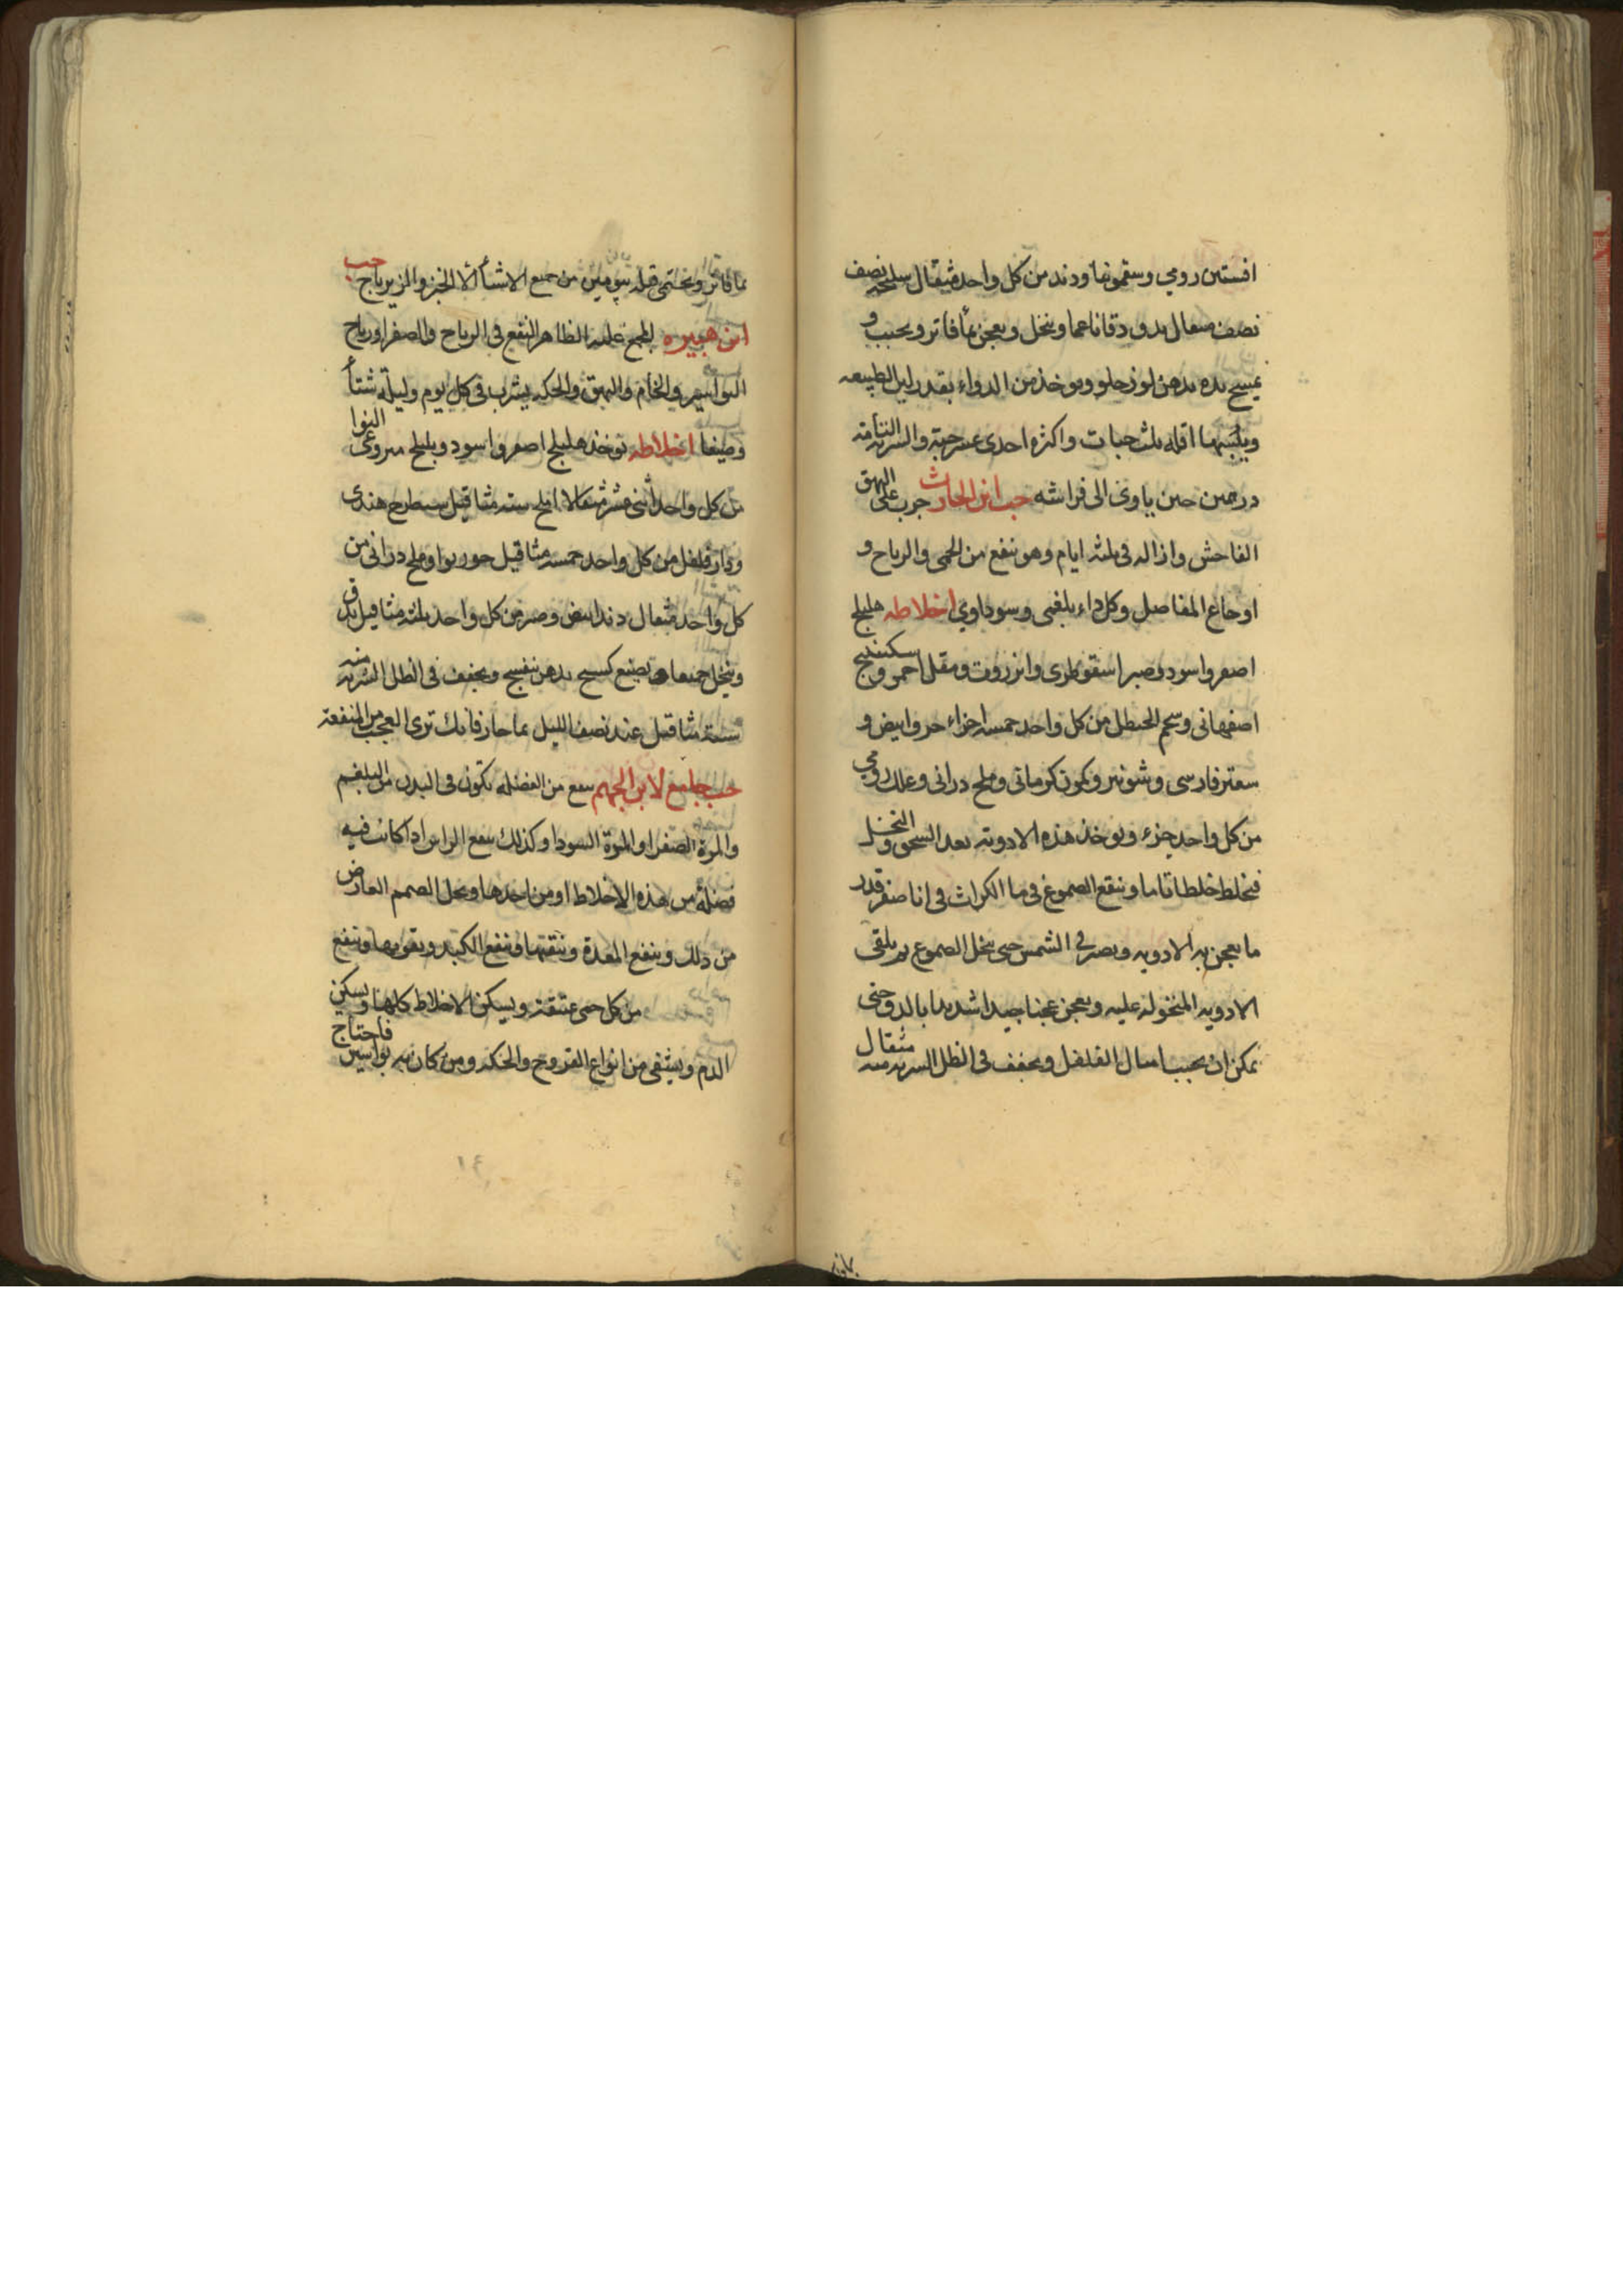 افسنتين رومي وسقمونيا ودند من كل واحد مثقال سليخه نصف
نصف مثقال يدق دقا ناعما وينخل ويعجن بمأ فاتر ويحبب و
يمسح يده بدهن لوز حلو ويوخذ من الدواء بقدر لين الطبيعه
ويبسها اقله ثلث حبات واكثره احدى عشر حبة والشربة التامة
درهمين حين ياوى الى فراشه حب ابن الحارث جرب على البهق
الفاحش وازاله في ثلثه ايام وهو ينفع من الحمى والرياح و
اوجاع المفاصل وكل داء بلغمى وسوداوي اخلاطه هليلج
اصفر واسود وصبر اسقوطرى وانزروت ومقل احمر وسكبينج
اصفهانى وشحم الحنظل من كل واحد خمسه اجزاء حرف ابيض و
سعتر فارسى وشونيز وكمون كرمانى وملح درانى وعلك رومي
من كل واحد جزء ويوخذ هذه الادوية بعد السحق والنخل
فيخلط خلطا تاما وينقع الصموغ في ما الكراث في انا صفر قدر
ما يعجن به الادويه ويصير في الشمس حتى ينحل الصموغ ثم يلقى
الادويه المنخوله عليه ويعجن عجنا جيدا شديدا بالدق حتى
يمكن ان يحبب امثال الفلفل ويجفف في الظل الشربه منه مثقال
بما فاتر ويحتمى قبله بيومين من جميع الاشيأ الا الخبز والزيرباج حب
ابن هبيره المجمع عليه الظاهر النفع في الرياح والصفرا ورياح
البواسير والخام والبهق والحكه يشرب في كل يوم وليلة شتأ
وصيفا اخلاطه يوخذ هليلج اصفر واسود وبليلج منزوعى النوا
من كل واحد اثنى عشر مثقالا املج سته مثاقيل شيطرج هندى
ودارفلفل من كل واحد خمسه مثاقيل جوزبوا وملح درانى من
كل واحد مثقال دند ابيض وصبر من كل واحد ثلثه مثاقيل يدق
وينخل جميعا ويصنع كسبح بدهن بنفسج ويجفف في الظل الشربه منه
ستة مثاقيل عند نصف الليل بما حار فانك ترى العجب من المنفعة
حب جامع لابن الجهم ينفع من الفضله تكون في البدن من البلغم
والمرة الصفرا والمرة السودا وكذلك ينفع الراس اذا كانت فيه
فضلة من هذه الاخلاط او من احدها ويحل الصمم العارض
من ذلك وينفع المعدة وينقيها وينفع الكبد ويقويها وينفع
من كل حمى عتيقة ويسكن الاخلاط كلها ويسكن
الدم ويشفى من انواع القروح والحكه ومن كان به بواسير فاحتاج